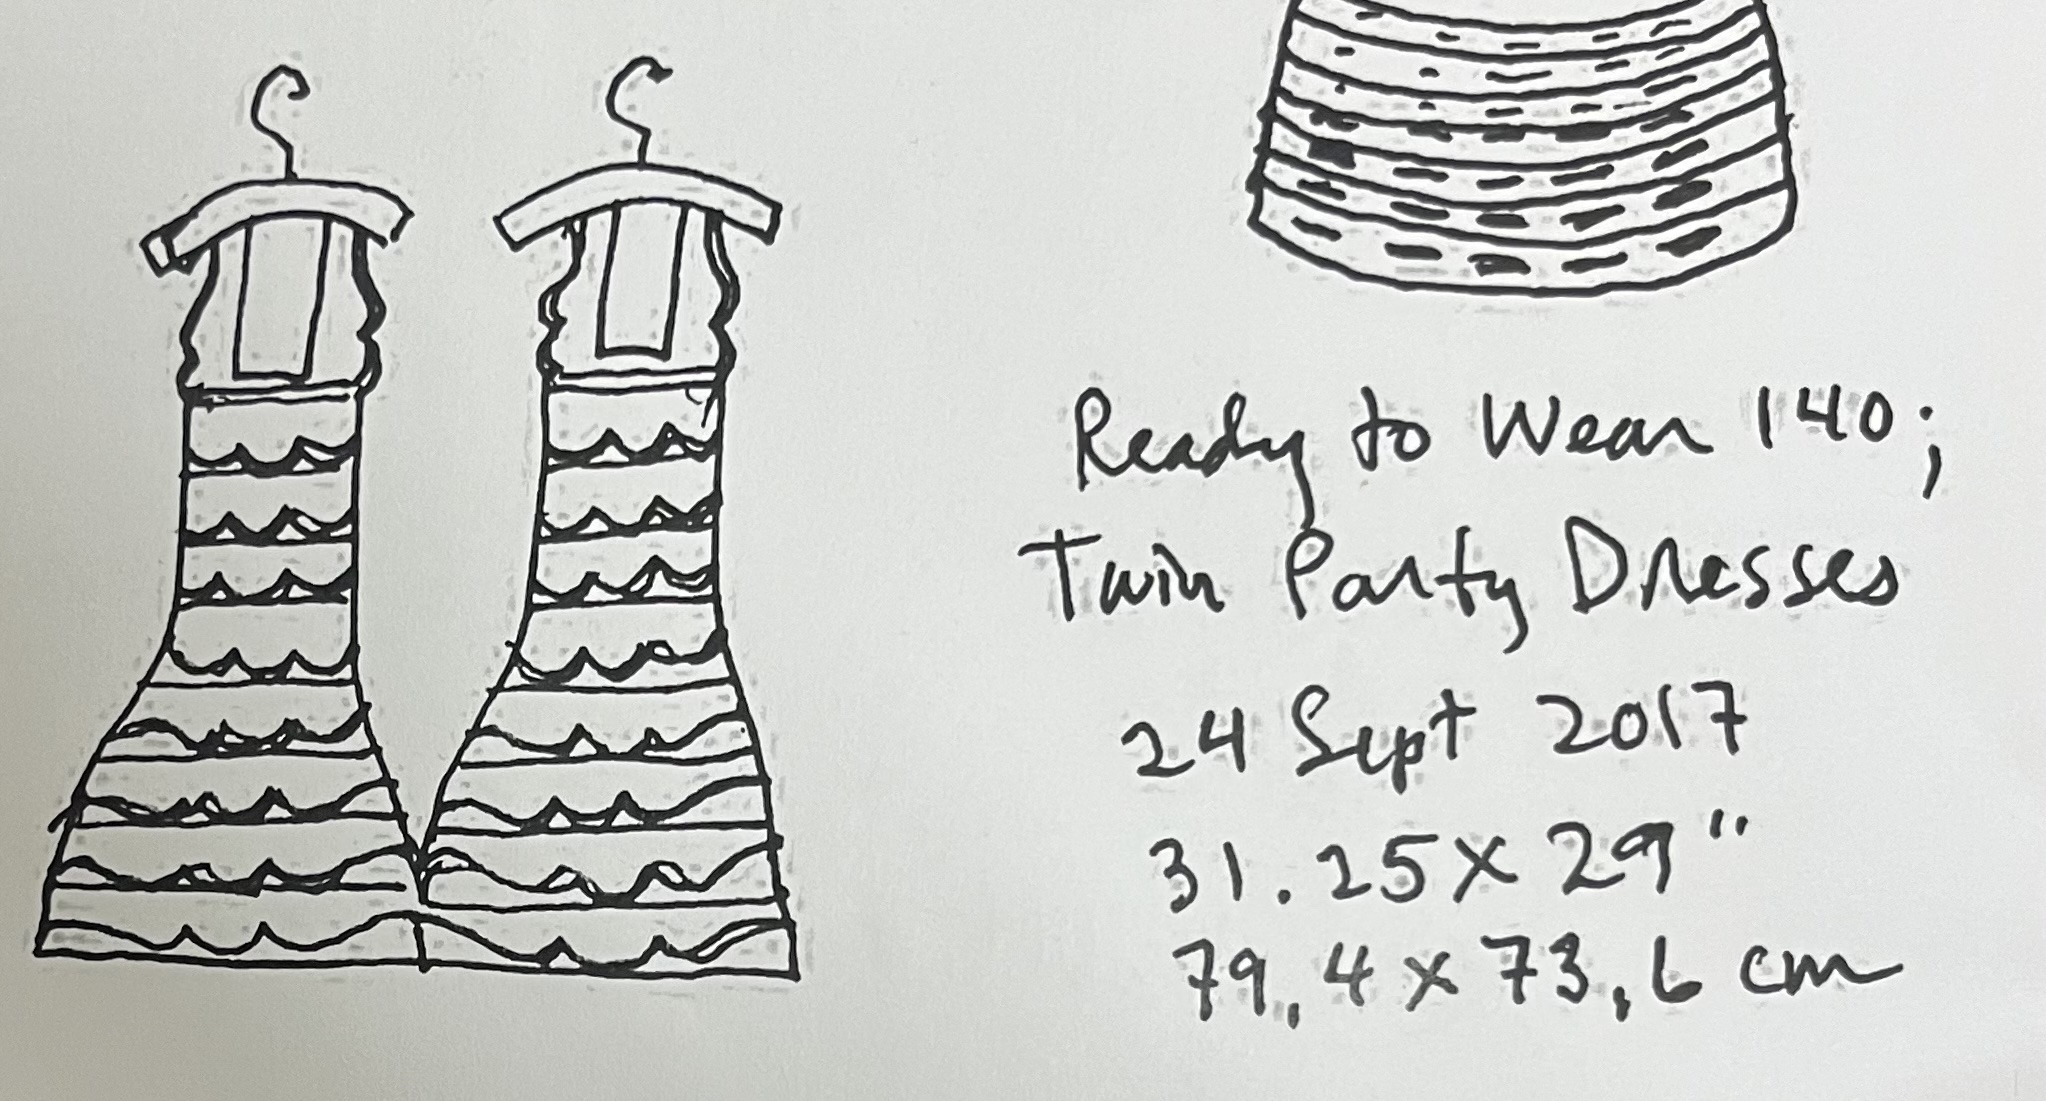 Ready to Wear 140;
Twin Party Dresses
24 Sept 2017
31.25 x 29"
79.4 x 73.6 cm